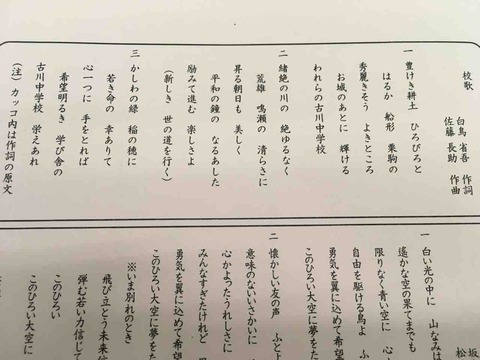 校歌
白鳥 省吾 作詞
佐藤 長助 作曲
一 豊けき耕土 ひろびろと
はるか 船形 栗駒の
秀麗きそう よきところ
お城のあとに 輝ける
われらの古川中学校
二 緒絶の川の 絶ゆるなく
荒雄 鳴瀬の 清らさに
昇る朝日も 美しく
平和の鐘の なるあした
励みて進む 楽しさよ
(新しき 世の道を行く)
三 かしわの緑 稲の穂に
若き命の 幸ありて
心一つに 手をとれば
希望明るき 学び舎の
古川中学校 栄えあれ
(注) カッコ内は作詞の原文
松坂
一 白い光の中に 山なみは
遥かな空の果てまでも
限りなく青い空に 心
自由を駆ける鳥よ ふ
勇気を翼に込めて希望
このひろい大空に夢をた
二 懐かしい友の声 ふとよ
意味のないいさかいに
心かよったうれしさに
みんなすぎたけれど
勇気を翼に込めて希望
このひろい大空に夢をた
※いま別れのとき
飛び立とう未来信
弾む若い力信じて
このひろい
このひろい大空に